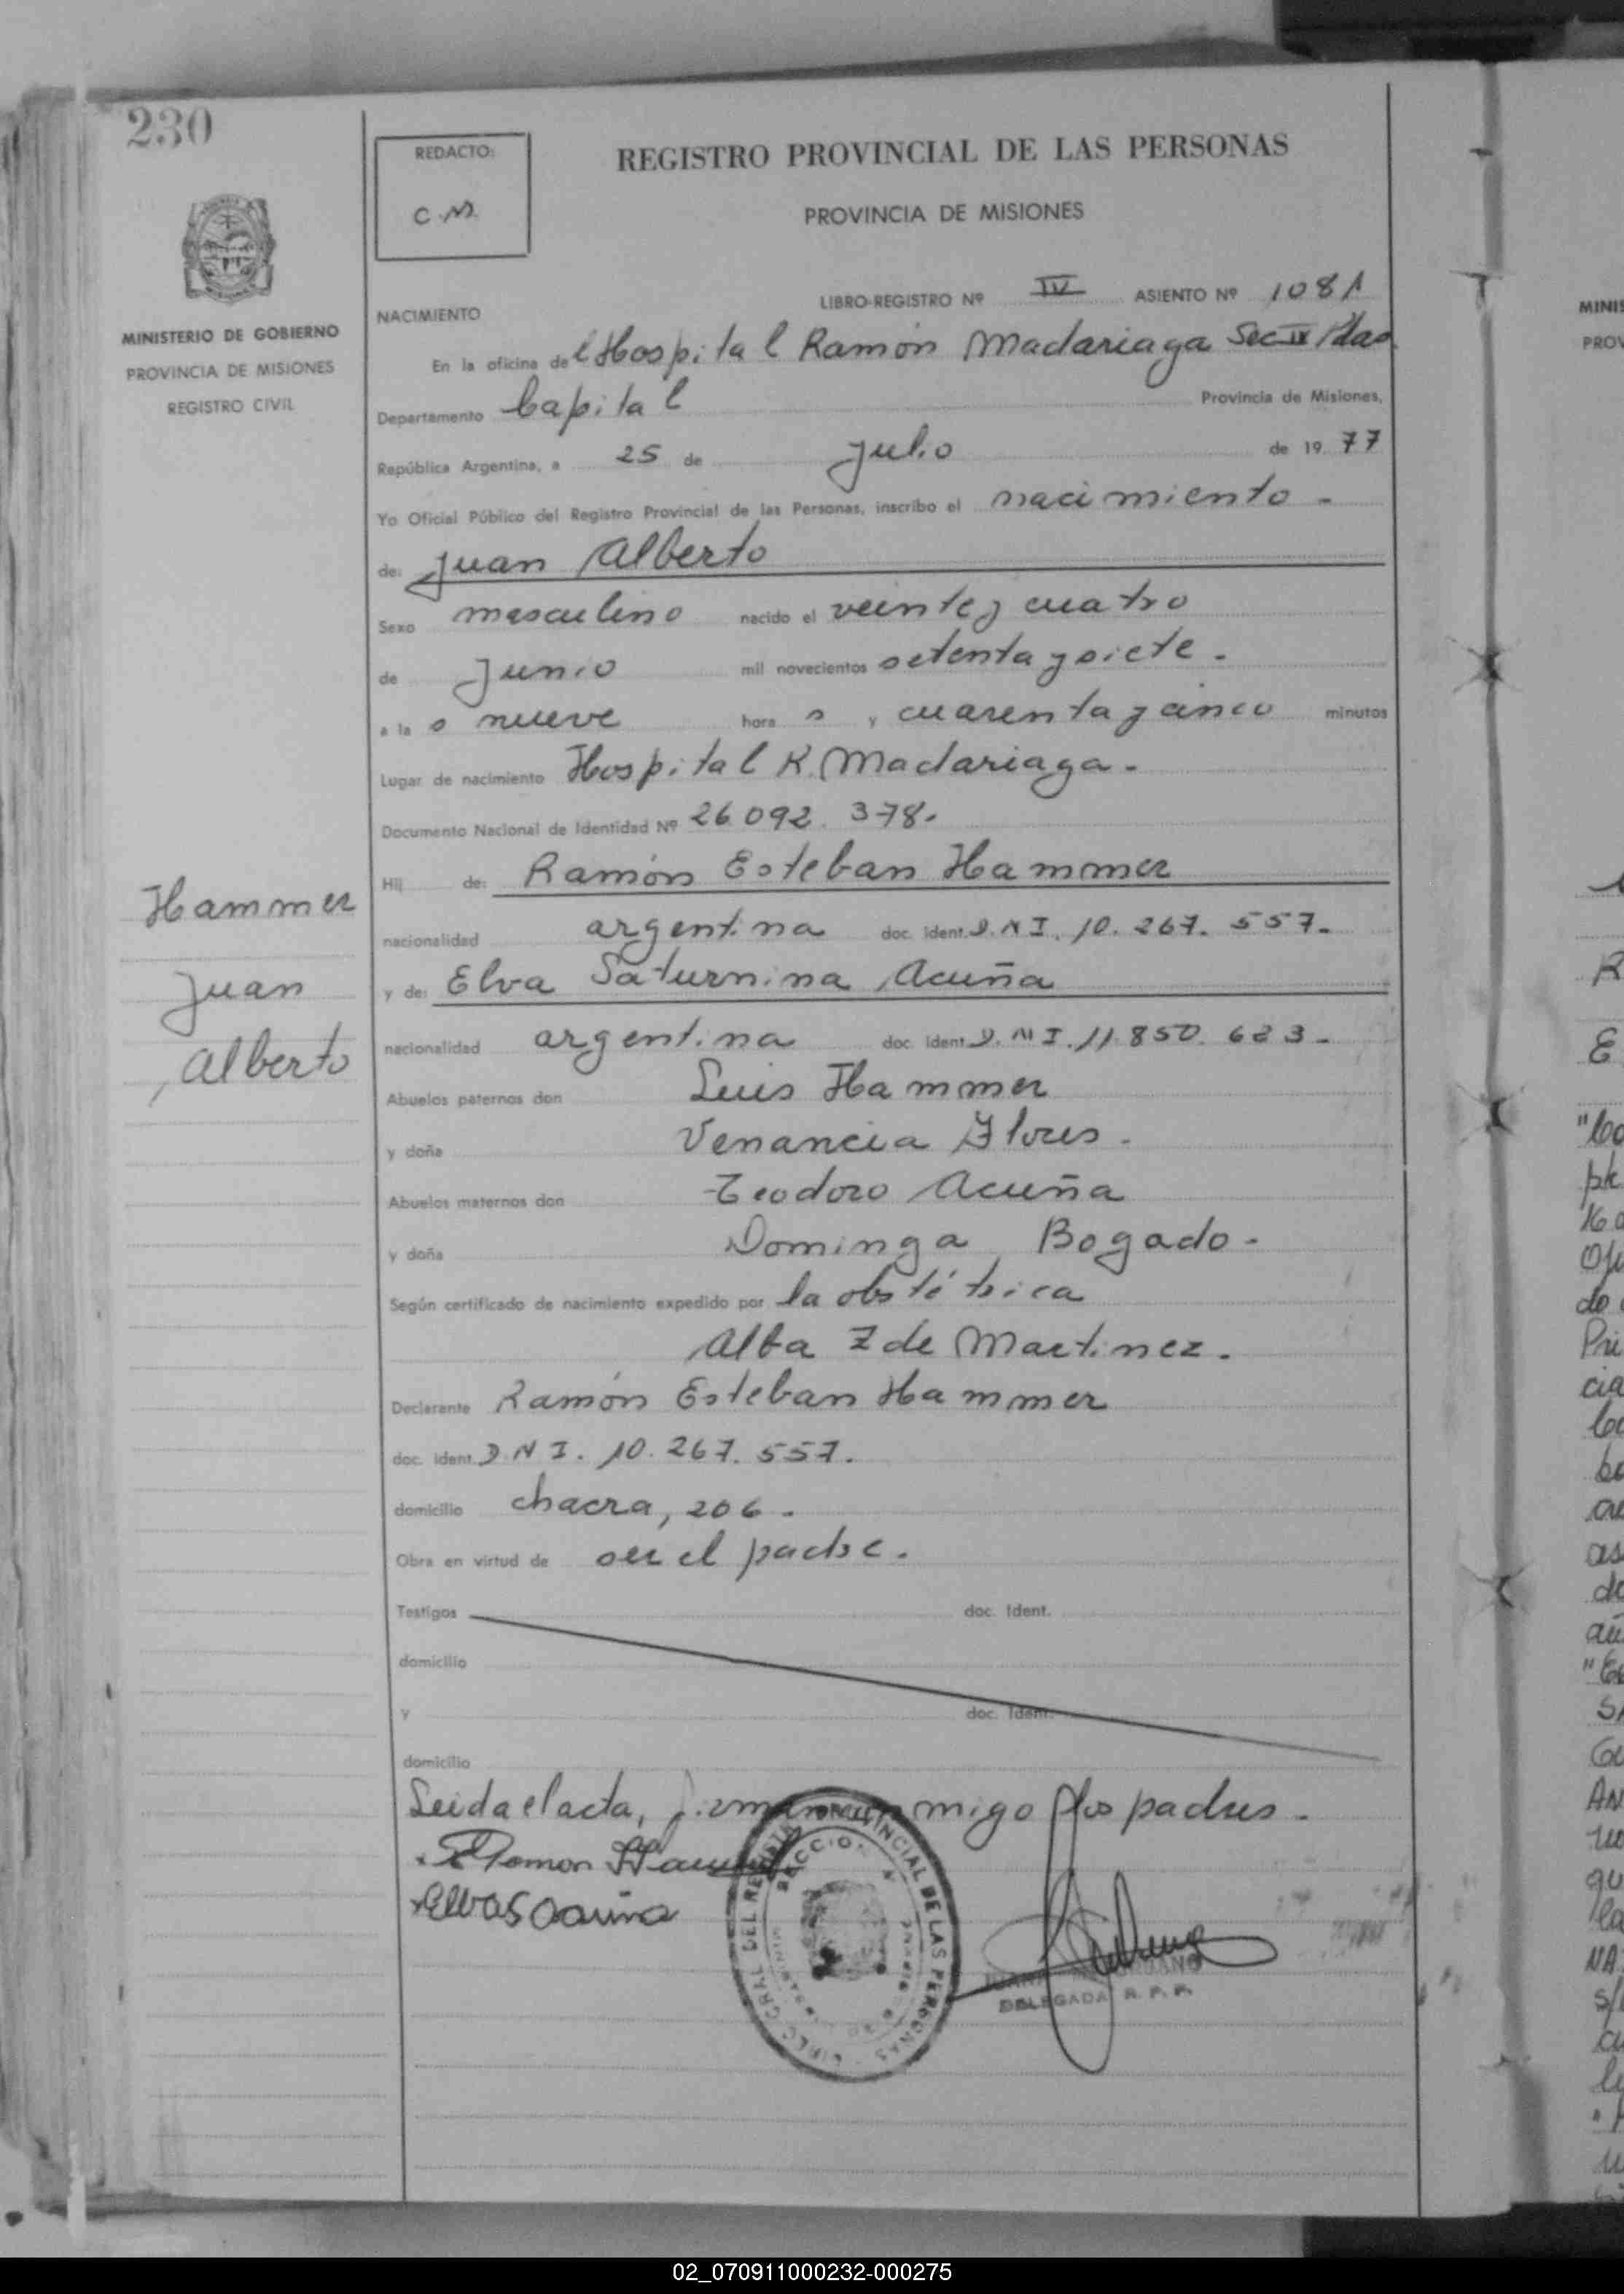 230
REDACTO:
C.M.
REGISTRO PROVINCIAL DE LAS PERSONAS
PROVINCIA DE MISIONES
MINISTERIO DE GOBIERNO
PROVINCIA DE MISIONES
REGISTRO CIVIL
NACIMIENTO
LIBRO-REGISTRO Nº IV ASIENTO Nº 1081
En la oficina del Hospital Ramón Madariaga Sec IV Pdas.
Departamento Capital Provincia de Misiones,
República Argentina, a 25 de Julio de 1977
Yo Oficial Público del Registro Provincial de las Personas, inscribo el nacimiento -
de: Juan Alberto
Sexo masculino nacido el veinte y cuatro
de Junio mil novecientos setenta y siete.
a la s nueve hora s y cuarenta y cinco minutos
Lugar de nacimiento Hospital R. Madariaga.
Documento Nacional de Identidad Nº 26.092.378.
Hij de: Ramón Esteban Hammer
nacionalidad argentina doc. ident. D.N.I. 10.267.557.
y de: Elva Saturnina Acuña
nacionalidad argentina doc. ident. D.N.I. 11.850.623-
Hammer
Juan
Alberto
Abuelos paternos don Luis Hammer
y doña Venancia Flores.
Abuelos maternos don Teodoro Acuña
y doña Dominga Bogado.
Según certificado de nacimiento expedido por la obstétrica
Alba Z de Martinez.
Declarante Ramón Esteban Hammer
doc. ident. D.N.I. 10.267.557.
domicilio chacra, 206.
Obra en virtud de ser el padre.
Testigos doc. ident.
domicilio
y doc. ident.
domicilio
Leida el acta, firman conmigo los padres.
Ramon Hammer
Elva S Acuña
DIREC. GRAL. DEL REGISTRO PROVINCIAL DE LAS PERSONAS
SECCION
DELEGADA R. P. P.
MINIS
PROV
02_070911000232-000275